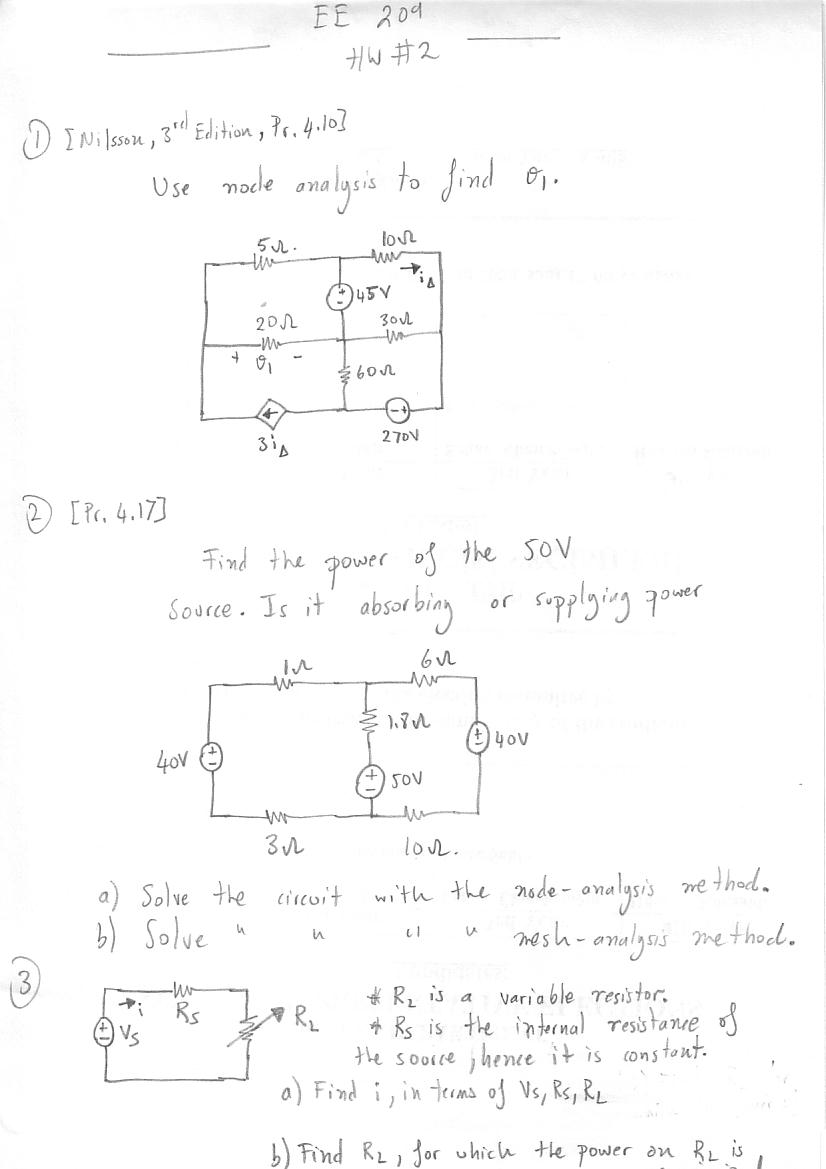 EE 209
HW #2
① [Nilsson, 3rd Edition, Pr. 4.10]
Use node analysis to find v₁.
5Ω.
10Ω
iΔ
45V
20Ω
30Ω
+ v₁ -
60Ω
3iΔ
270V
② [Pr. 4.17]
Find the power of the 50V
Source. Is it absorbing or supplying power
1Ω
6Ω
1.8Ω
40V
40V
50V
3Ω
10Ω.
a) Solve the circuit with the node-analysis method.
b) Solve " " " " mesh-analysis method.
③
i
RS
VS
RL
* RL is a variable resistor.
* RS is the internal resistance of
the soorce, hence it is constant.
a) Find i, in terms of VS, RS, RL
b) Find RL, for which the power on RL is